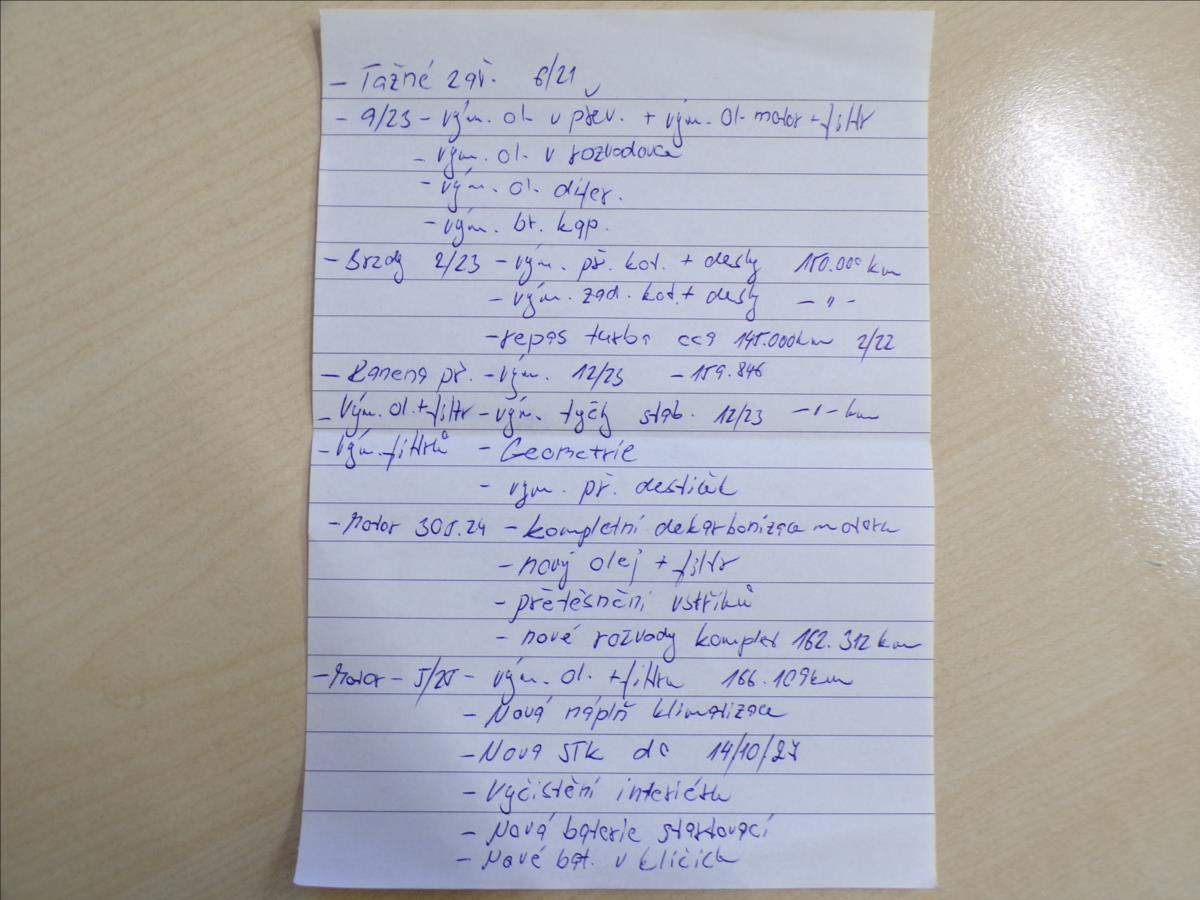 - Tažné zař. 6/21
- 9/23 - vým. ol. v přev. + vým. ol. motor + filtr
- vým. ol. v rozvodovce
- vým. ol. difer.
- vým. br. kap.
- Brzdy 2/23 - vým. př. kot. + desky 150.000 km
- vým. zad. kot. + desky - " -
- repas turba cca 145.000km 2/22
- Ramena př. - vým. 12/23 - 159.846
- Vým. ol. + filtr - vým. tyčky stab. 12/23 - " - km
- Vým. filtrů - Geometrie
- vým. př. destiček
- Motor 30.5.24 - kompletní dekarbonizace motoru
- nový olej + filtr
- přetěsnění vstřiků
- nové rozvody komplet 162.312 km
- Motor - 5/25 - vým. ol. + filtru 166.109km
- Nová náplň klimatizace
- Nová STK do 14/10/27
- Vyčistění interiéru
- Nová baterie startovací
- Nové bat. v klíčích